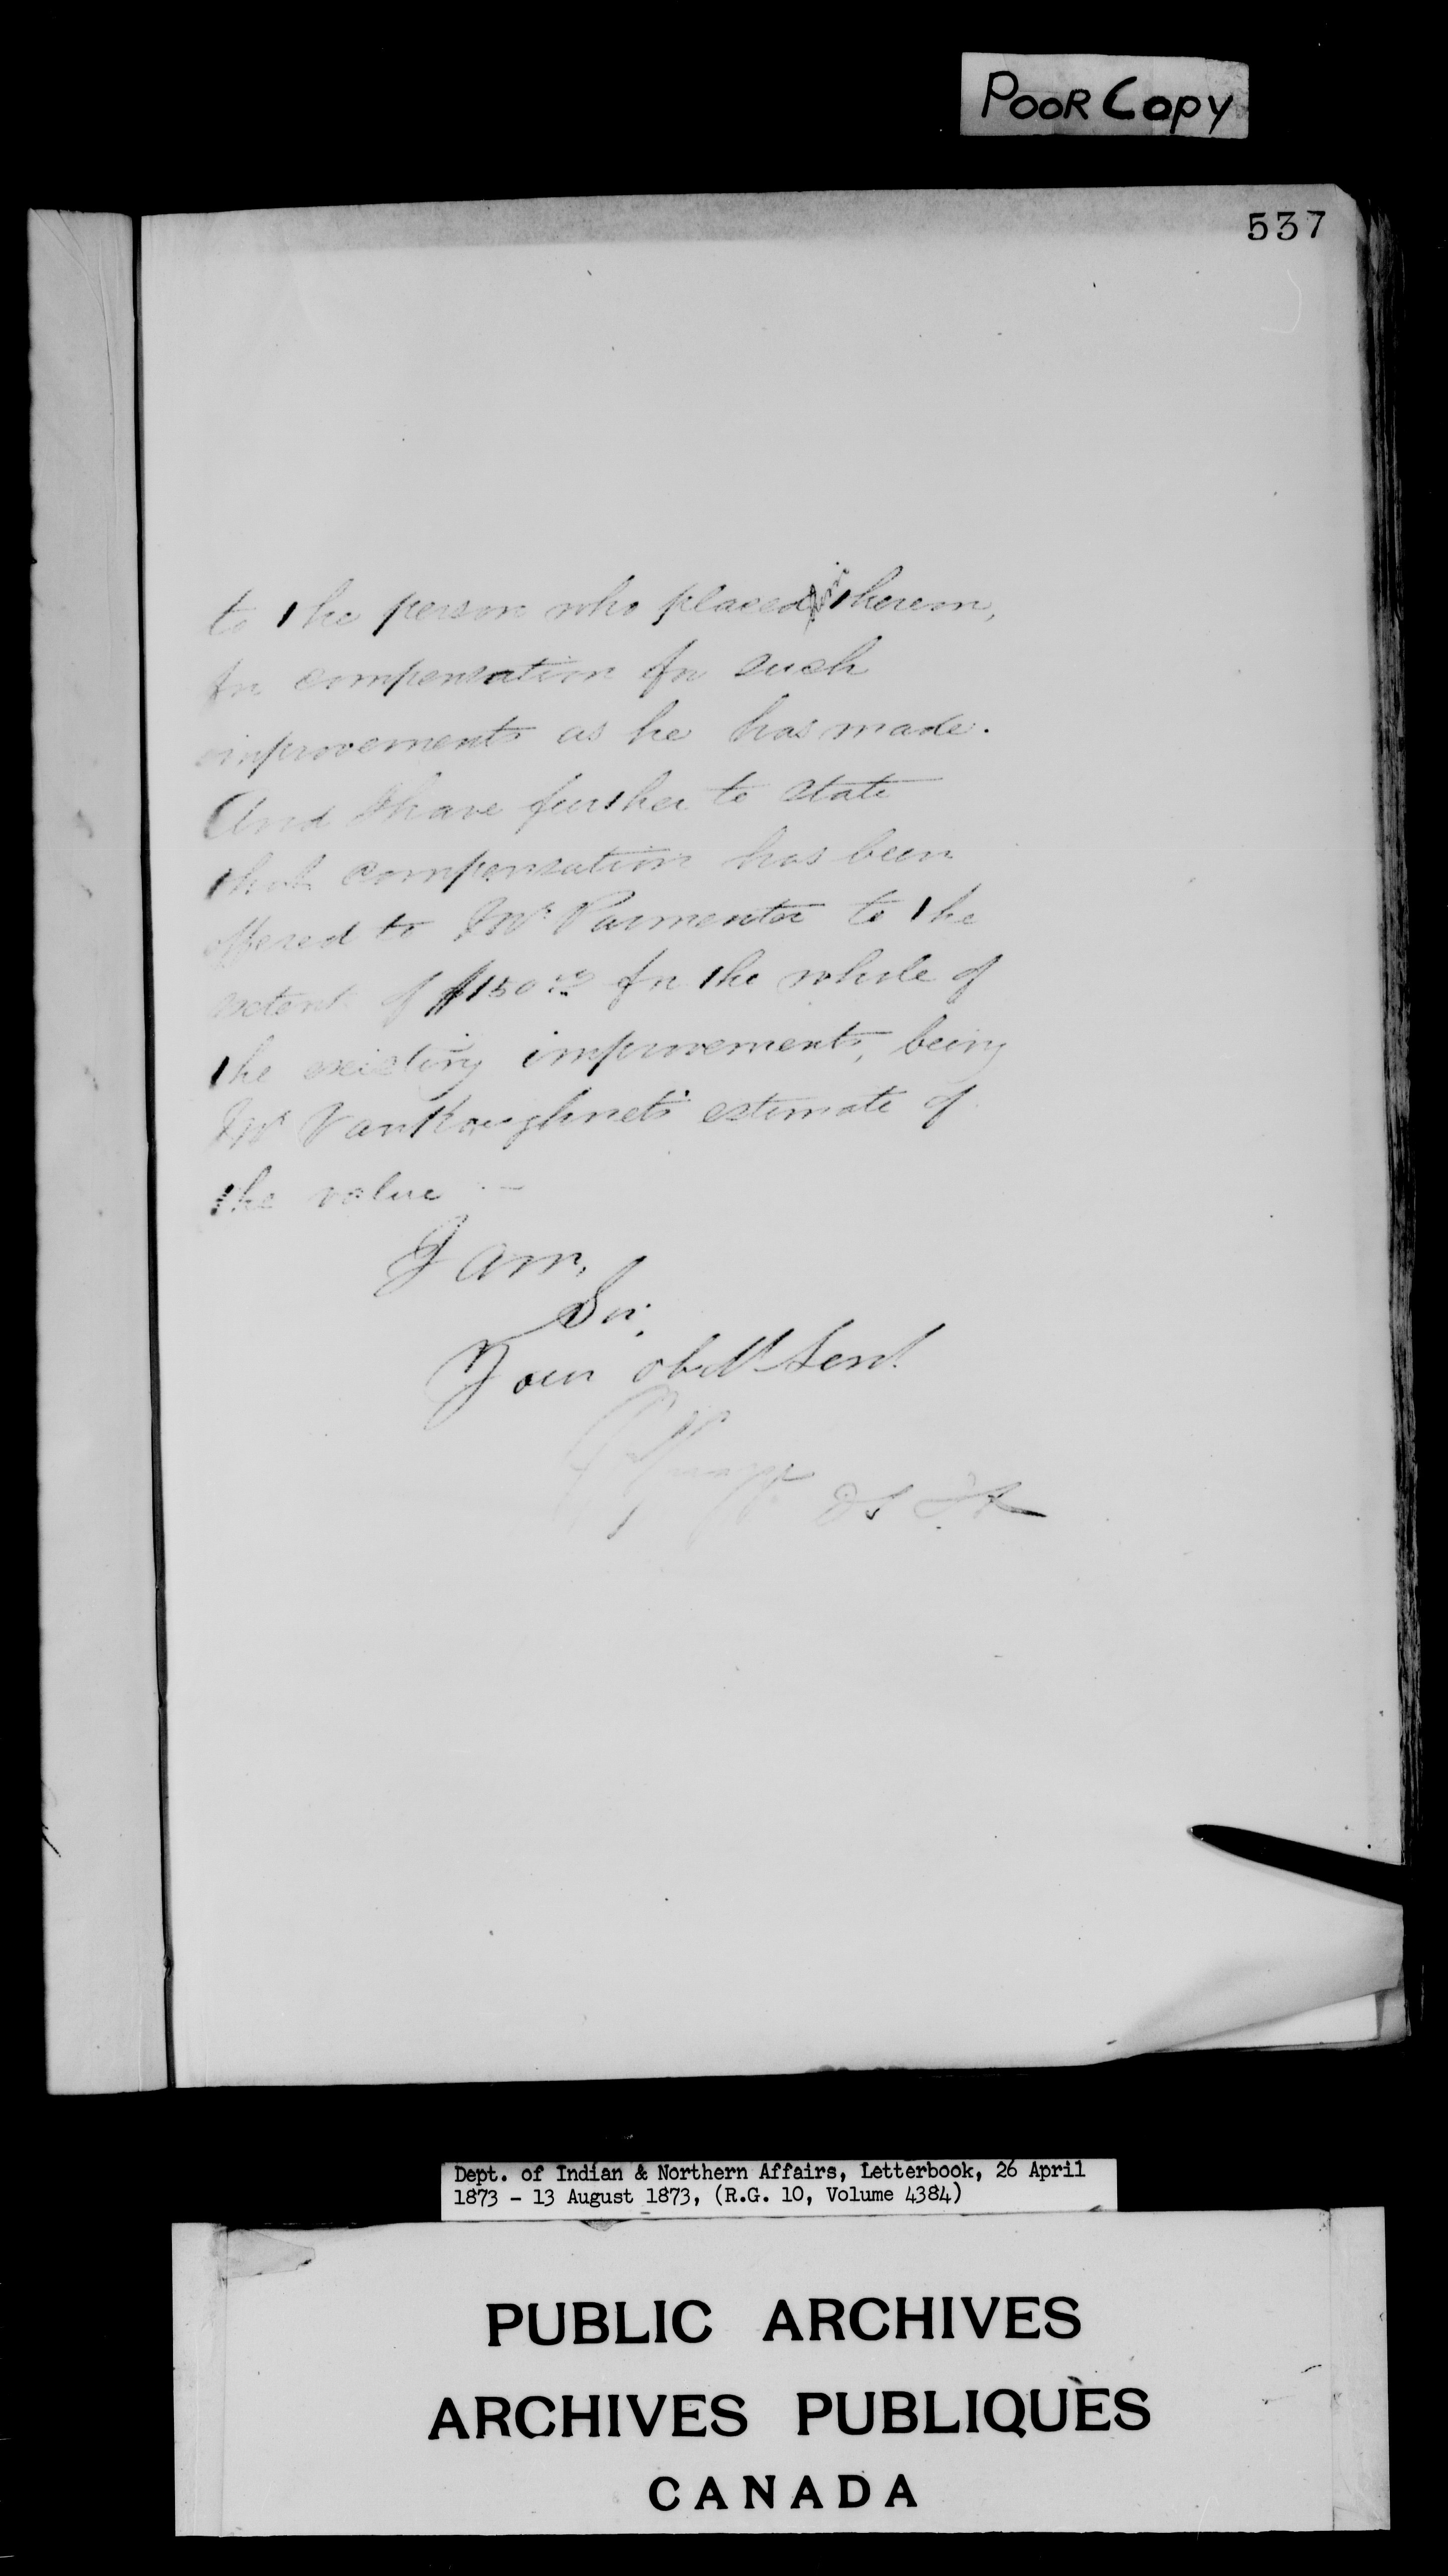 POOR COPY
537
to the person who placed him therein,
for compensation for such
improvements as he has made.
And I have further to state
that compensation has been
offered to Mr Parmenter to the
extent of $150.00 for the whole of
the existing improvements, being
Mr VanKoughnet's estimate of
the value —
I am,
Sir,
Your obedt Servt
Dept. of Indian & Northern Affairs, Letterbook, 26 April
1873 - 13 August 1873, (R.G. 10, Volume 4384)
PUBLIC ARCHIVES
ARCHIVES PUBLIQUES
CANADA